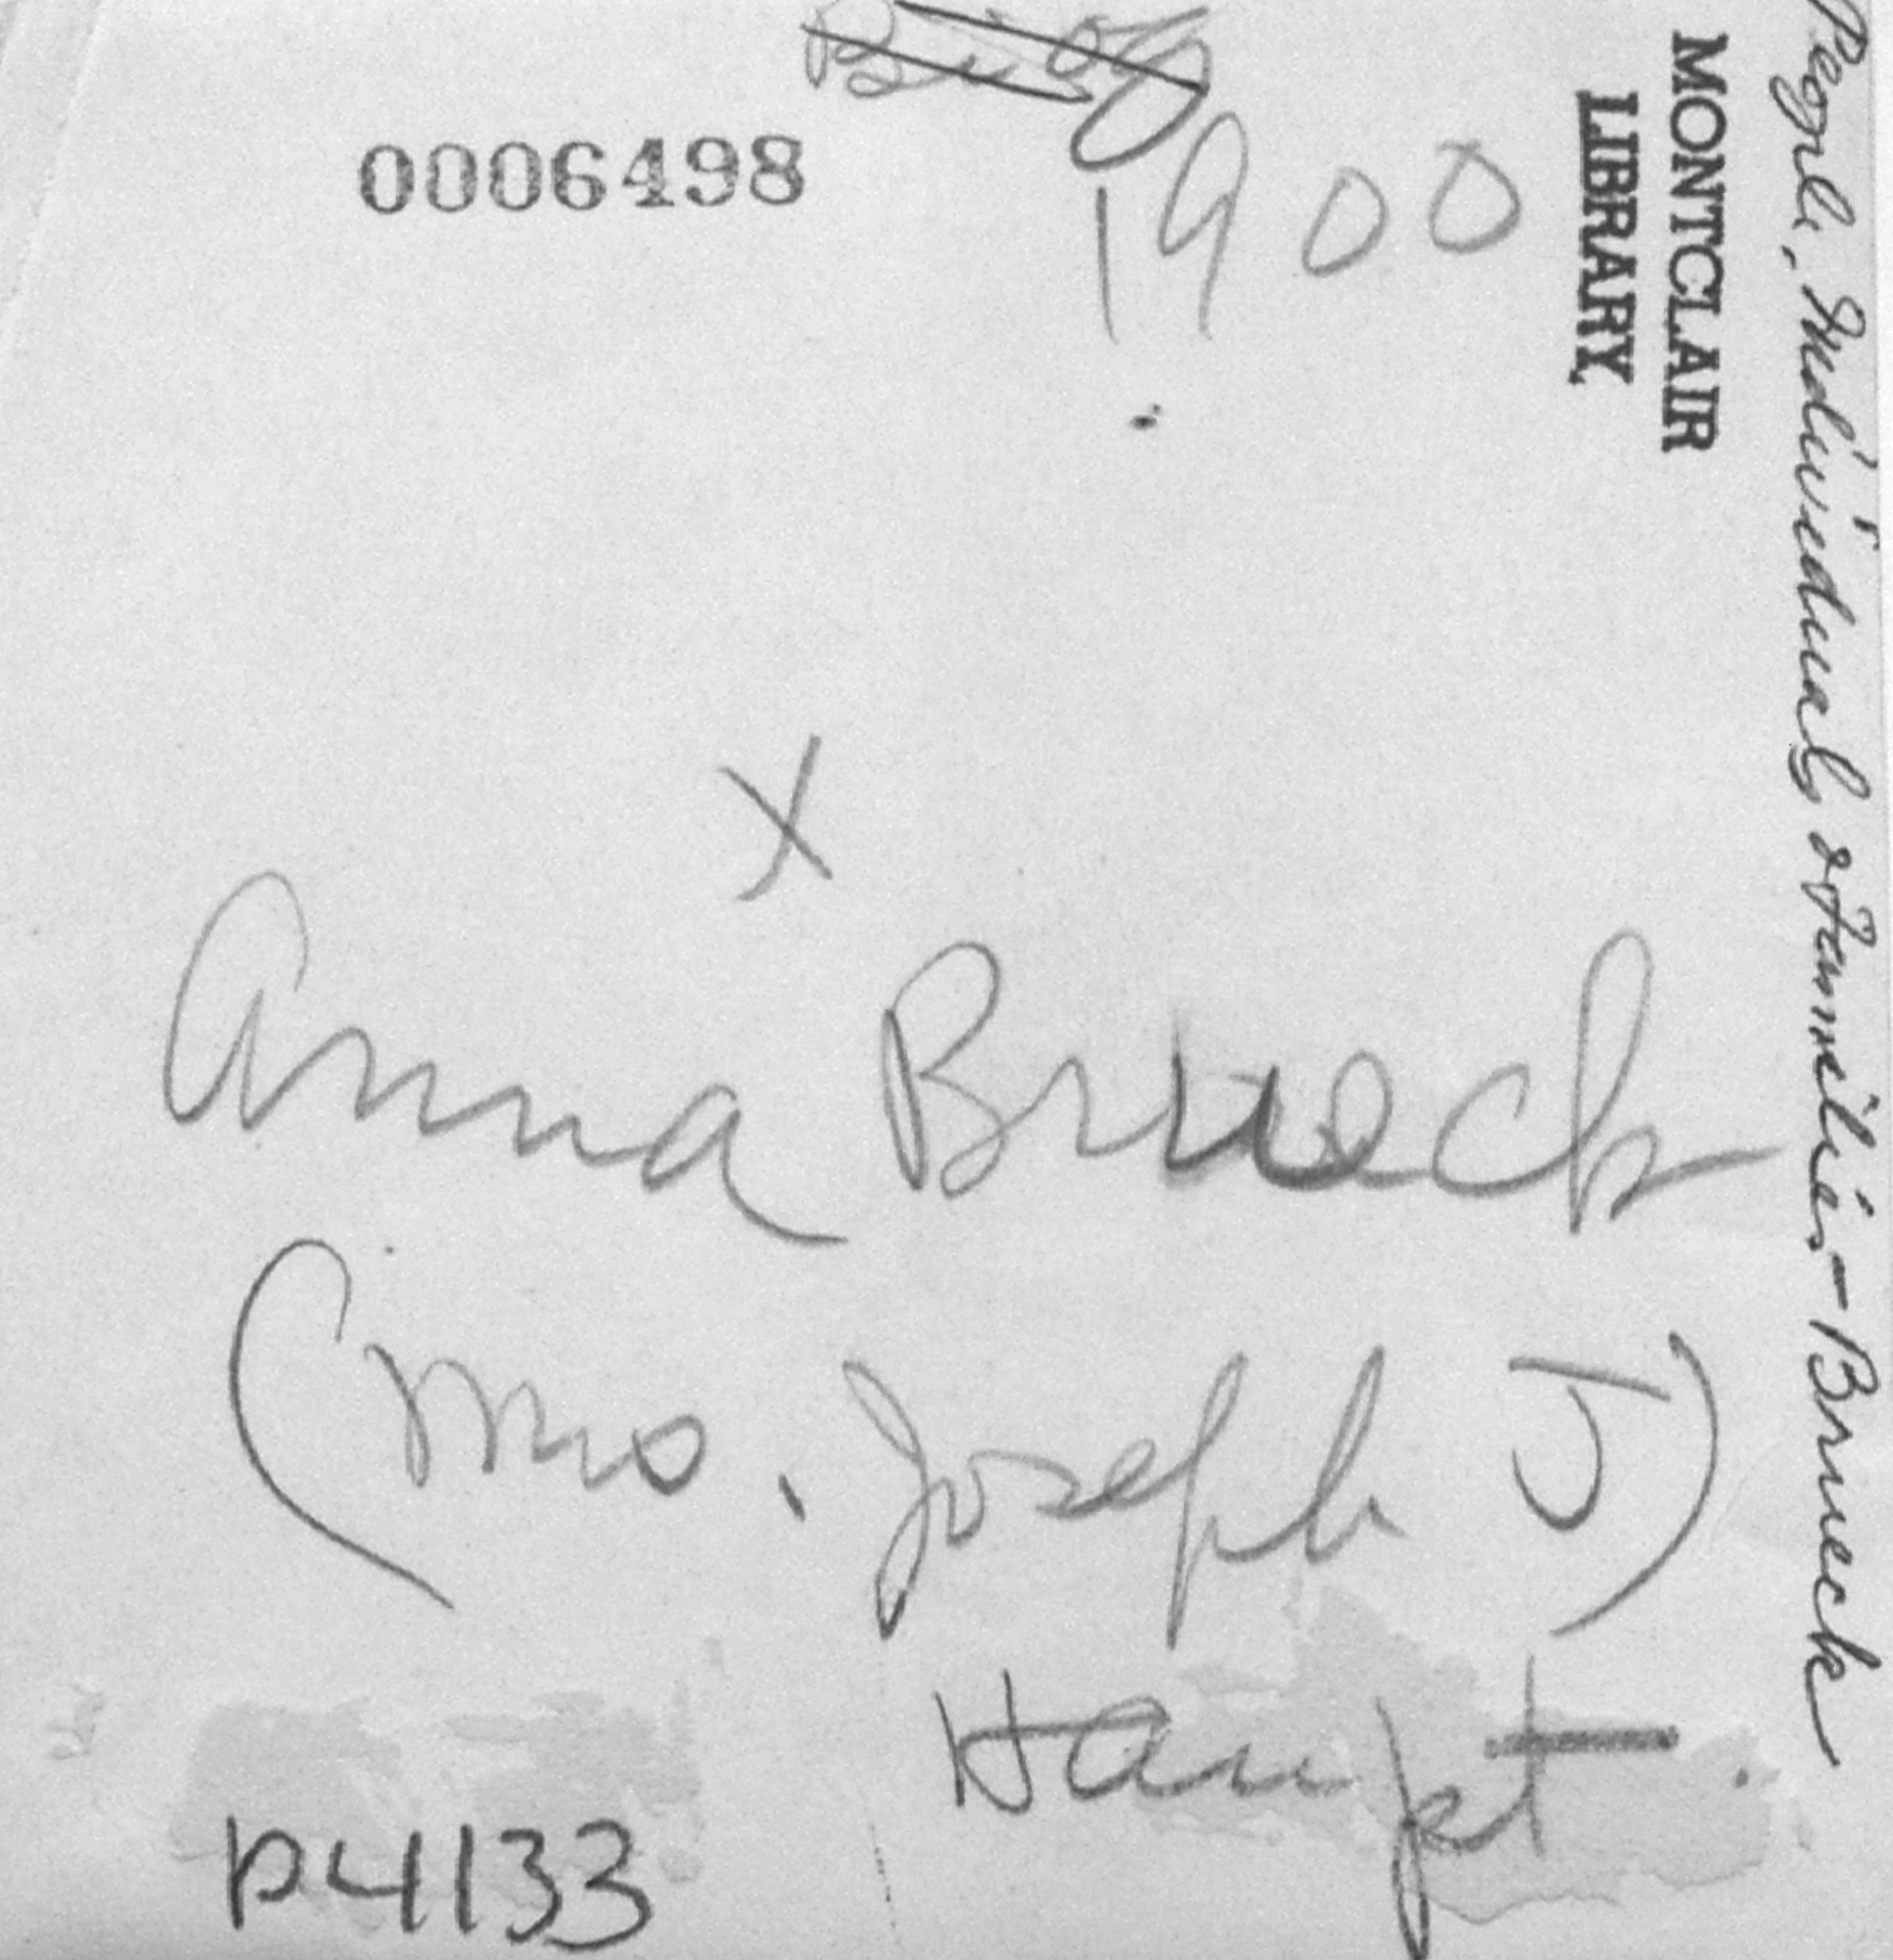 0006498
1900
MONTCLAIR
LIBRARY
People, Individuals & Families - Brueck
X
Anna Brueck
(Mrs. Joseph J)
Haupt.
P4133